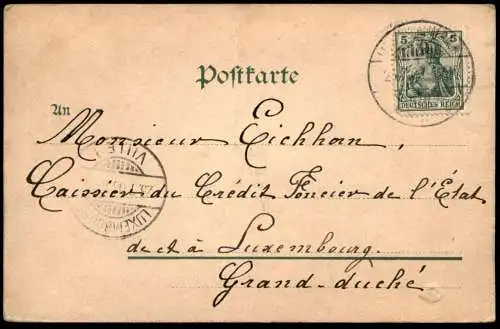 5 5
DEUTSCHES REICH
Postkarte
An
Monsieur Eichhorn,
VILLE
Caissier du Crédit Foncier de l'État
LUXEMBOURG
de et à Luxembourg.
Grand-duché